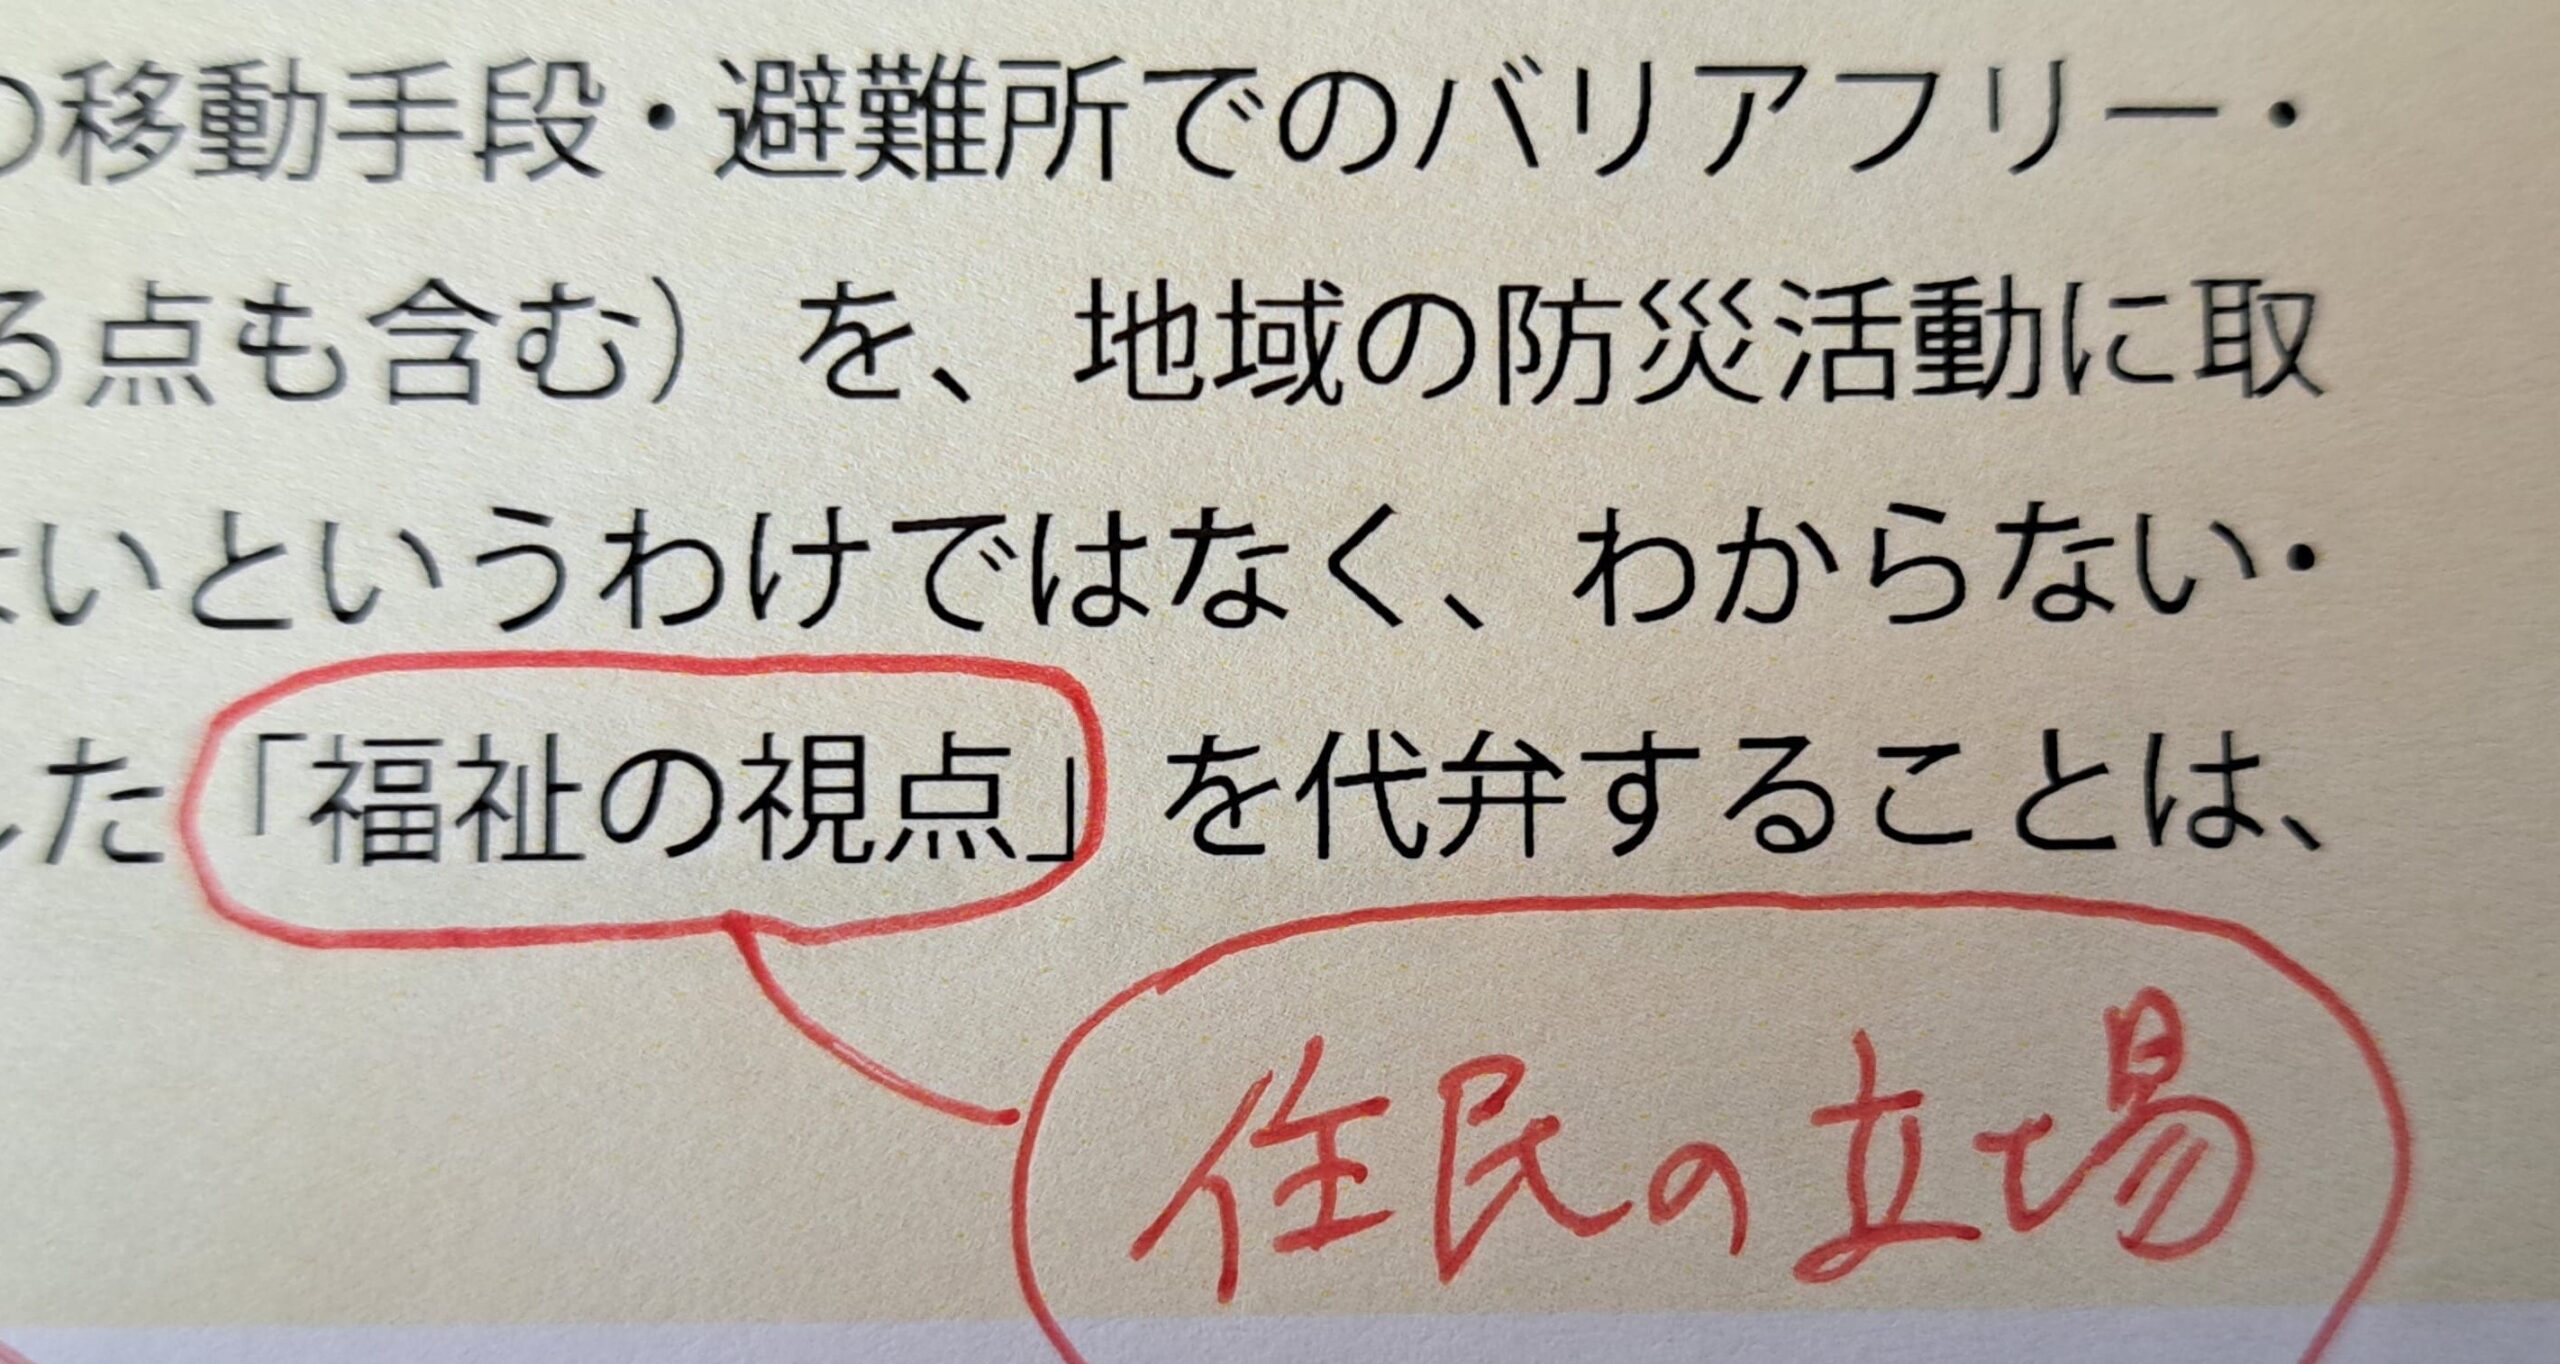 の移動手段・避難所でのバリアフリー・
る点も含む）を、地域の防災活動に取
いというわけではなく、わからない・
した「福祉の視点」を代弁することは、
住民の立場